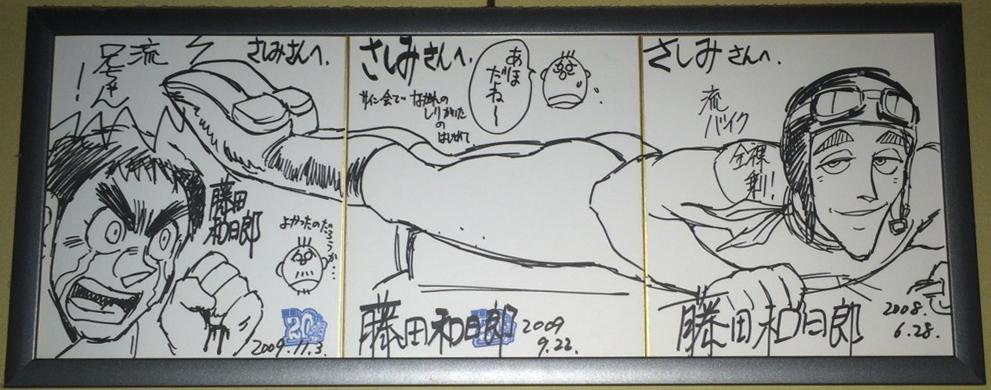 さしみさんへ.
流
兄ちゃん
！
藤田
和日郎
よかったのだろうか…
20
2009.11.3.
さしみさんへ.
サイン会で
ながれの
しりがいた
の
はじめて
あほ
だね〜
藤田和日郎
2009
9.22.
さしみさんへ.
流
バイク
全裸
乗り
藤田和日郎
2008.
6.28.